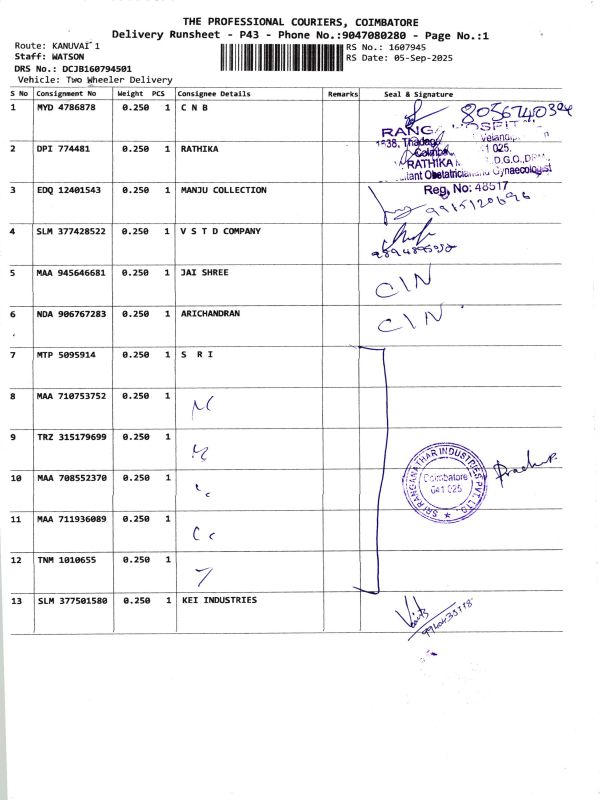 THE PROFESSIONAL COURIERS, COIMBATORE
Delivery Runsheet - P43 - Phone No.:9047080280 - Page No.:1
Route: KANUVAI 1
RS No.: 1607945
Staff: WATSON
RS Date: 05-Sep-2025
DRS No.: DCJB160794501
Vehicle: Two Wheeler Delivery
S No Consignment No Weight PCS Consignee Details Remarks Seal & Signature
1 MYD 4786878 0.250 1 C N B
8056740394
2 DPI 774481 0.250 1 RATHIKA
3 EDQ 12401543 0.250 1 MANJU COLLECTION
Reg, No: 48517
9915120696
4 SLM 377428522 0.250 1 V S T D COMPANY
5 MAA 945646681 0.250 1 JAI SHREE
CIN
6 NDA 906767283 0.250 1 ARICHANDRAN
CIN
7 MTP 5095914 0.250 1 S R I
8 MAA 710753752 0.250 1
9 TRZ 315179699 0.250 1
10 MAA 708552370 0.250 1
SRI RANGANATHAR INDUSTRIES PVT. LTD.
Coimbatore
641 025
11 MAA 711936089 0.250 1
12 TNM 1010655 0.250 1
13 SLM 377501580 0.250 1 KEI INDUSTRIES